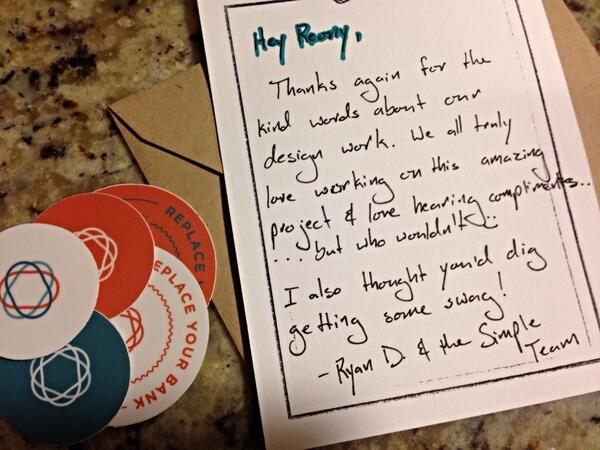 Hey Reony,
Thanks again for the
kind words about our
design work. We all truly
love working on this amazing
project & love hearing compliments...
... but who wouldn't
I also thought you'd dig
getting some swag!
- Ryan D. & the Simple
Team
REPLACE
REPLACE YOUR BANK